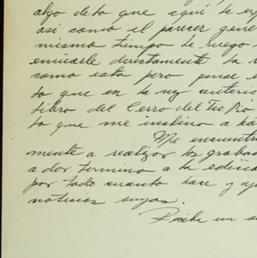 algo de lo que aquí te
así como el parecer gene
mismo tiempo te ruego
enviarle directamente la
como esta pero pense
to que en te rey anterior
libro del Cerro del Tío Pío
lo que me inclino a ha
Me encuentro
mente a realizar los graba
a dar termino a la edición
por todo cuanto hace y
noticias suyas.
Recibe un